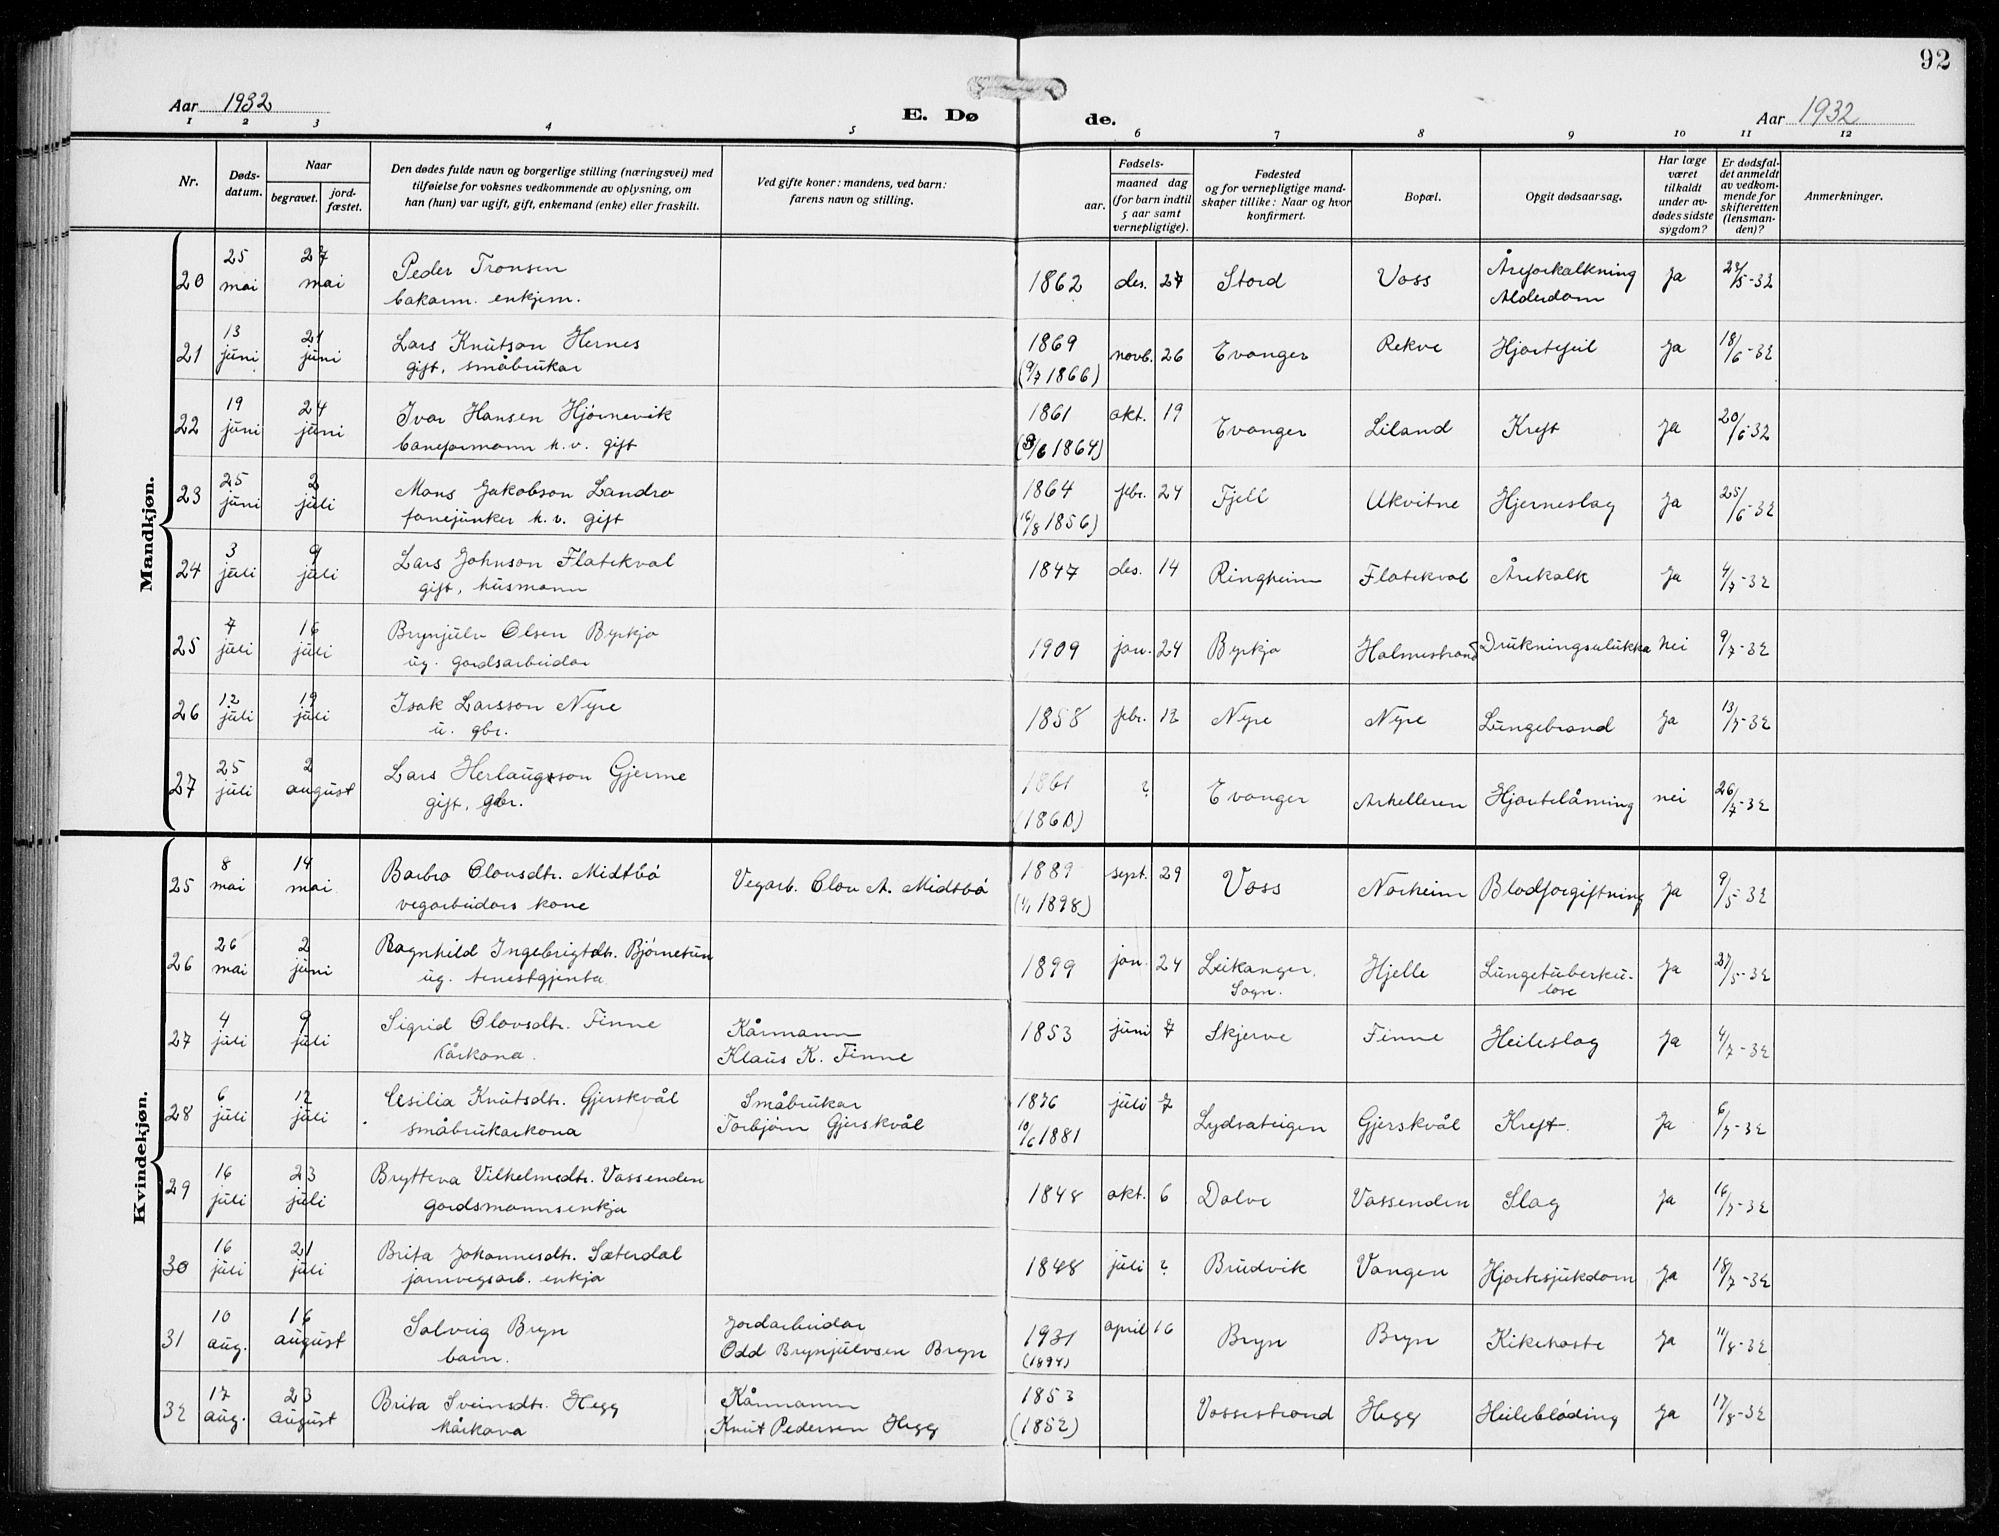 92
Aar 1932
E. Dø
de.
Aar 1932
1 2 3 4 5 6 7 8 9 10 11 12
Nr.
Døds-
datum.
Naar
begravet.
jord-
fæstet.
Den dødes fulde navn og borgerlige stilling (næringsvei) med
tilføielse for voksnes vedkommende av oplysning, om
han (hun) var ugift, gift, enkemand (enke) eller fraskilt.
Ved gifte koner: mandens, ved barn:
farens navn og stilling.
Fødsels-
aar.
maaned dag
(for barn indtil
5 aar samt
vernepligtige).
Fødested
og for vernepligtige mand-
skaper tillike: Naar og hvor
konfirmert.
Bopæl.
Opgit dødsaarsag.
Har læge
været
tilkaldt
under av-
dødes sidste
sygdom?
Er dødsfal-
det anmeldt
av vedkom-
mende for
skifteretten
(lensman-
den)?
Anmerkninger.
Mandkjøn.
20 25 mai 27 mai Peder Tronsen 1862 des. 27 Stord Voss Åreforkalkning Ja
bakarm. enkjem. Alderdom
21 13 juni 21 juni Lars Knutson Hernes 1869 novb. 26 Evanger Rekve Hjortefeil Ja 18/6-32
gift, småbrukar (9/7 1866)
22 19 juni 24 juni Ivar Hansen Hjørnevik 1861 okt. 19 Evanger Liland Kreft Ja 20/6-32
baneformann h.v. gift
23 25 juni 2 juli Mons Jakobson Landro 1864 febr. 24 Fjell Ukvitne Hjerneslag Ja 25/6-32
fanejunker h.v. gift
24 3 juli 9 juli Lars Johnson Flatekval 1847 des. 14 Ringheim Flatekval Årekalk Ja 4/7-32
gift, husmann
25 7 juli 16 juli Brynjulv Olsen Byrkjo 1909 jan. 24 Byrkjo Holmestrand Drukningsulukka nei 9/7-32
ug. gardsarbeidar
26 12 juli 19 juli Isak Larsson Nyre 1858 febr. 12 Nyre Nyre Lungebrand Ja 13/7-32
u. gbr.
27 25 juli 2 august Lars Herlaugsson Gjerme 1861 ? Evanger Arhelleren Hjartelåming nei 26/7-32
gift, gbr.
Kvindekjøn.
25 8 mai 14 mai Barbro Olavsdtr. Midtbø Vegarb. Olav A. Midtbø 1889 sept. 29 Voss Norheim Blodforgiftning Ja 9/5-32
vegarbeidars kone
26 26 mai 2 juni Ragnhild Ingebrigtdtr. Bjørnetun 1899 jan. 24 Leikanger, Hjelle Lungetuberku- Ja 27/5-32
ug. tenestgjenta Sogn. lose
27 4 juli 9 juli Sigrid Olavsdtr. Finne Kårmann 1853 juni 7 Skjerve Finne Heileslag Ja 4/7-32
Kårkona. Klaus K. Finne
28 6 juli 12 juli Cesilia Knutsdtr. Gjerskvål Småbrukar 1876 juli 7 Lydvateigen Gjerskvål Kreft. Ja 6/7-32
småbrukarkona Torbjørn Gjerskvål 10/6 1881
29 16 juli 23 juli Brytteva Vilhelmsdtr. Vassenden 1848 okt. 6 Dolve Vassenden Slag Ja 16/7-32
gardsmannsenkja
30 16 juli 21 juli Brita Johannesdtr. Sæterdal 1848 juli ? Brudvik Vangen Hjartesjukdom Ja 18/7-32
jarnvegsarb. enkja
31 10 aug. 16 august Solveig Bryn Jordarbeidar 1931 april 16 Bryn Bryn Kikehoste Ja 11/8-32
barn. Odd Brynjulvsen Bryn (1894)
32 17 aug. 23 august Brita Sveinsdtr. Hegg Kårmann 1853 Vossestrand Hegg Heilebløding Ja 17/8-32
Kårkona Knut Pedersen Hegg (1852)